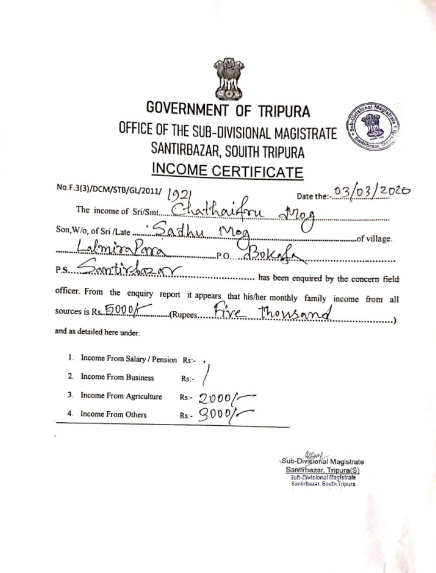 GOVERNMENT OF TRIPURA
OFFICE OF THE SUB-DIVISIONAL MAGISTRATE
SANTIRBAZAR, SOUTH TRIPURA
INCOME CERTIFICATE
No.F.3(3)/DCM/STB/GL/2011/ 1921 Date the:- 03/03/2020
The income of Sri/Smt. Chathaifru Mog
Son,W/o, of Sri /Late Sadhu Mog of village.
Lalmira Para P.O. Bokafa
P.S. Santirbazar has been enquired by the concern field
officer. From the enquiry report it appears that his/her monthly family income from all
sources is Rs. 5000/- (Rupees Five Thousand )
and as detailed here under:
1. Income From Salary / Pension Rs:-
2. Income From Business Rs:-
3. Income From Agriculture Rs:- 2000/-
4. Income From Others Rs:- 3000/-
Sub-Divisional Magistrate
Santirbazar, Tripura(S)
Sub-Divisional Magistrate
Santirbazar, South Tripura